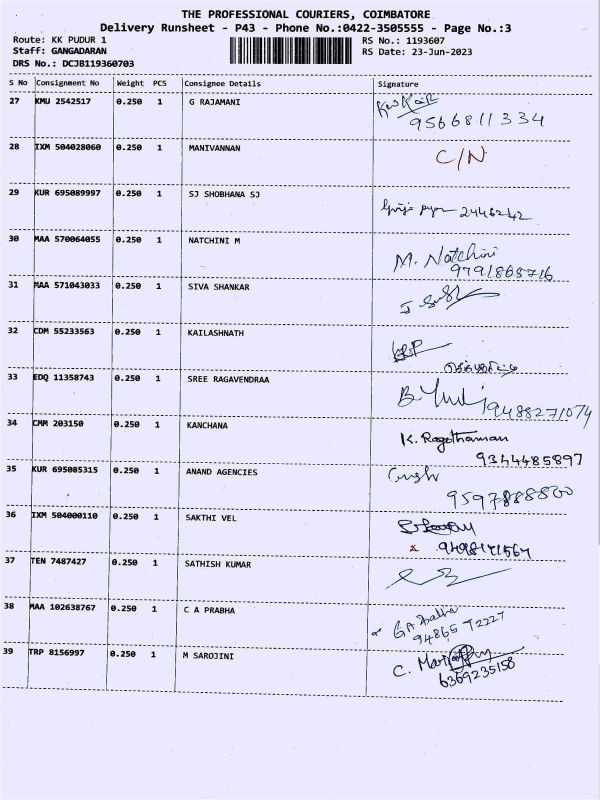 THE PROFESSIONAL COURIERS, COIMBATORE
Delivery Runsheet - P43 - Phone No.:0422-3505555 - Page No.:3
Route: KK PUDUR 1 RS No.: 1193607
Staff: GANGADARAN RS Date: 23-Jun-2023
DRS No.: DCJB119360703
S No Consignment No Weight PCS Consignee Details Signature
27 KMU 2542517 0.250 1 G RAJAMANI
9566811334
28 IXM 504028060 0.250 1 MANIVANNAN C/N
29 KUR 695089997 0.250 1 SJ SHOBHANA SJ
2446242
30 MAA 570064055 0.250 1 NATCHINI M M. Natchini
9791868716
31 MAA 571043033 0.250 1 SIVA SHANKAR
32 CDM 55233563 0.250 1 KAILASHNATH
33 EDQ 11358743 0.250 1 SREE RAGAVENDRAA
9488271074
34 CMM 203150 0.250 1 KANCHANA K. Ragothaman
9344485897
35 KUR 695085315 0.250 1 ANAND AGENCIES
9597888800
36 IXM 504000110 0.250 1 SAKTHI VEL
9498171567
37 TEN 7487427 0.250 1 SATHISH KUMAR
38 MAA 102638767 0.250 1 C A PRABHA
94865 72227
39 TRP 8156997 0.250 1 M SAROJINI
6369235158